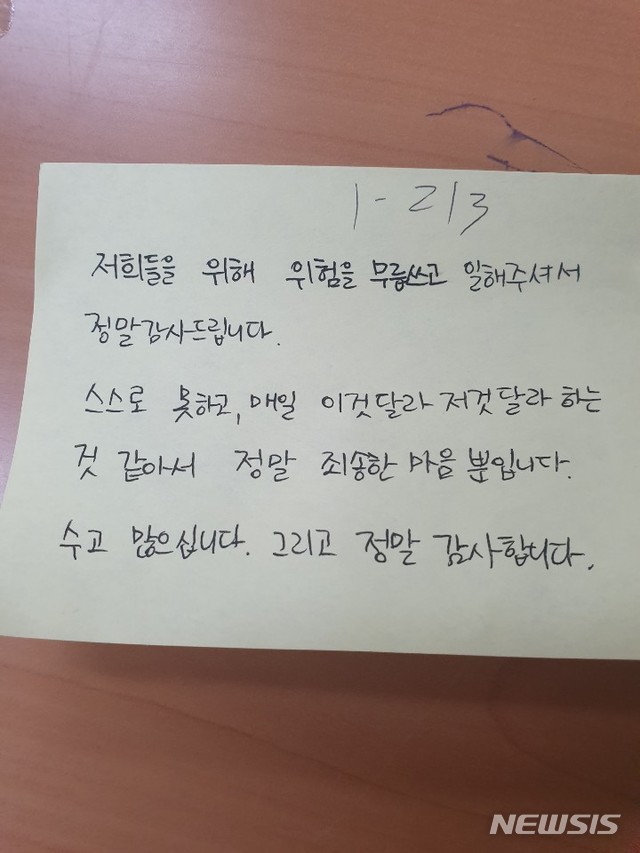 1-213
저희들을 위해 위험을 무릅쓰고 일해주셔서
정말감사드립니다.
스스로 못하고, 매일 이것달라 저것달라 하는
것 같아서 정말 죄송한 마음 뿐입니다.
수고 많으십니다. 그리고 정말 감사합니다.
NEWSIS